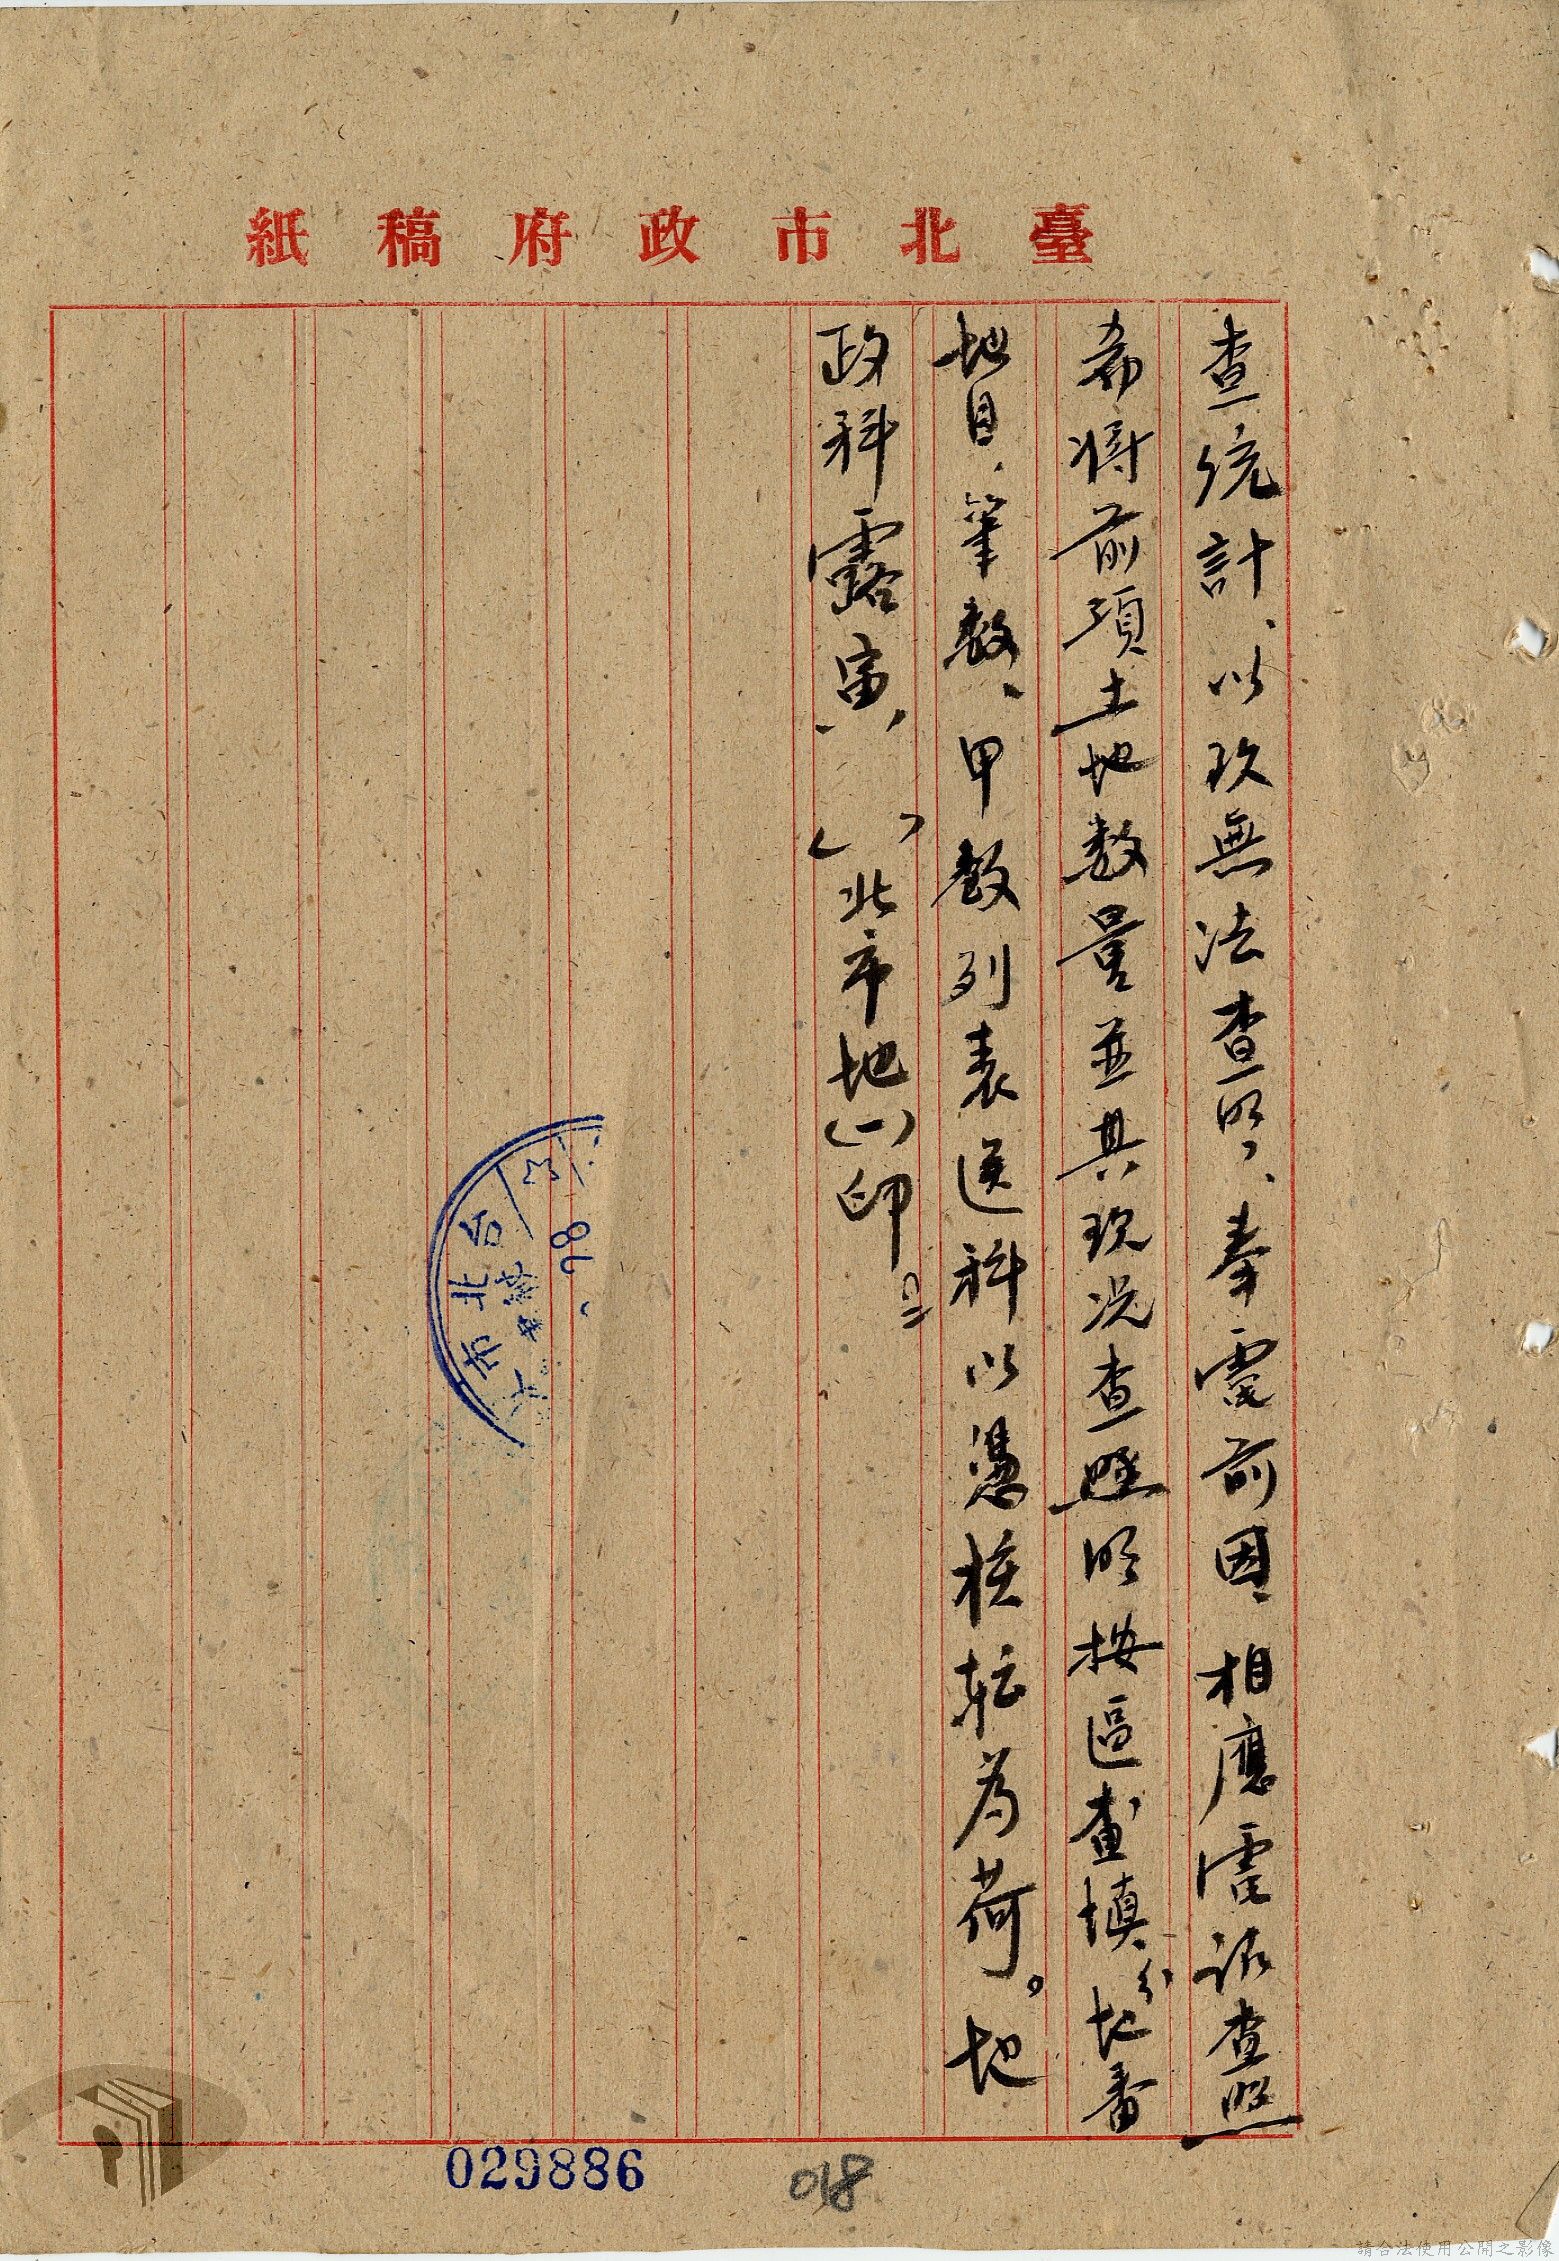 臺北市政府稿紙
查統計、以致無法查明、奉電前因相應電請查照
希將前項土地數量並其現況查照明按區查填分地番
地目、筆數、甲數列表送科以憑核轉為荷。地
政科露寅、( )北市地(一)印
台北市
029886
018
請合法使用公開之影像